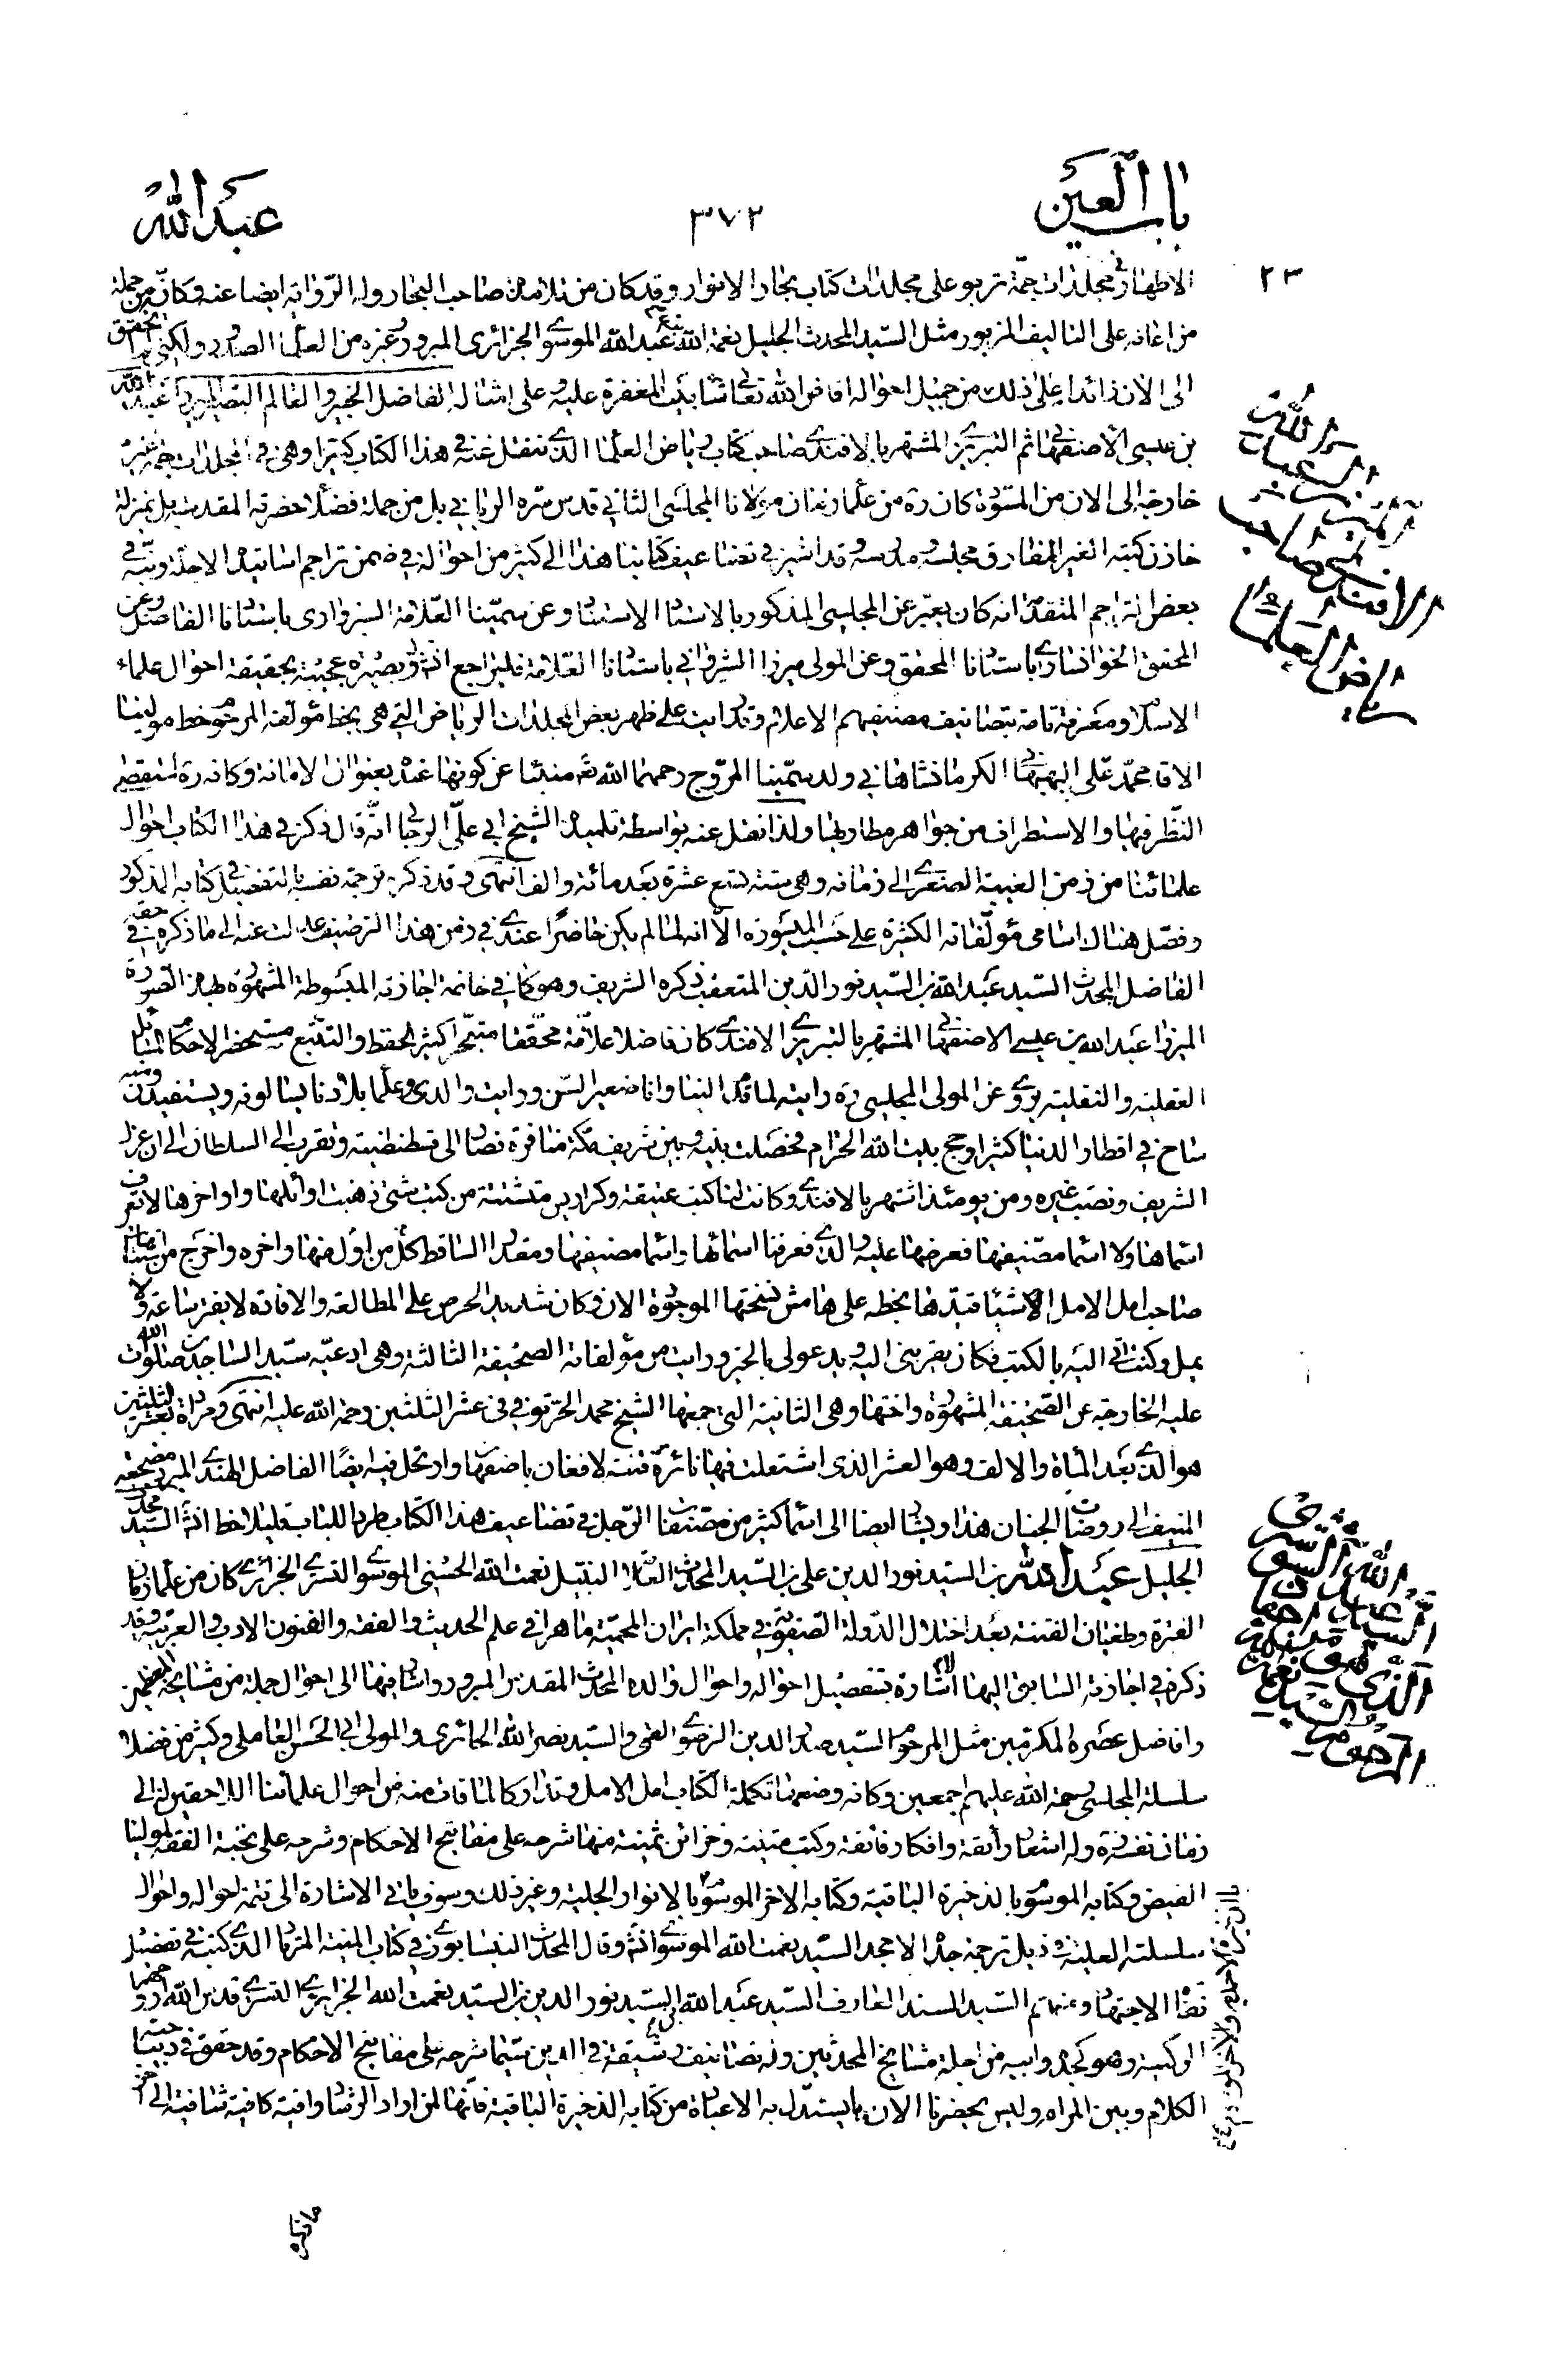 باب العين
٣٧٢
عبد الله
٢٣
الاطهار في مجلدات جمّة تربو على مجلدات كتاب بحار الانوار وقد كان من تلامذة صاحب البحار وله الرّواية ايضا عنه وكانّه من جملة
من اعانه على التاليف المزبور مثل السّيد المحدث الجليل نعمة الله بن عبد الله الموسوي الجزائرى المبرور وغيره من العلماء الصدور ولكنى لم اتحقق
الى الان زائدا على ذلك من جميل احواله افاض الله تعالى شابيب المغفرة عليه وعلى امثاله الفاضل الخبير والعالم البصير ميرزا عبد الله
بن عيسى الاصفهاني ثم التبريزي المشتهر بالافندي صاحب كتاب رياض العلماء الذي ننقل عنه في هذا الكتاب كثيرا وهي في مجلدات جمة غير
خارجة الى الان من المسوّدة كان ره من علماء زمان مولانا المجلسى الثاني قدس سره الربّاني بل من جملة فضلاء حضرته المقدسة بل بمنزلة
خازن كتبه الغير المفارق مجلسه ومدرسه وقد اشير في تضاعيف كتابنا هذا الى كثير من احواله في ضمن تراجم اساتيده الاجلة ونبّه في
بعض التراجم المتقدمة انه كان يعبّر عن المجلسي المذكور بالاستاد الاستناد وعن سميّنا العلامة السبزوارى باستادنا الفاضل وعن
المحقق الخوانساري باستادنا المحقق وعن المولى ميرزا الشيرواني باستادنا العلامة فليراجع انشاء وله بصيرة عجيبة بحقيقة احوال علماء
الاسلام ومعرفة تامة بتصانيف مصنفيهم الاعلام وقد رايت على ظهر بعض مجلدات الرياض التي هى بخط مؤلفه المرحوم خط مولينا
الاقا محمّد على البهبهاني الكرمانشاهاني ولد سميّنا المروّج رحمهما الله تع منبئا عن كونها عنده بعنوان الامانة وكانه ره استقصى
النظر فيها والاستطراف من جواهر مطاويها ولذا نقل عنه بواسطة تلميذه الشيخ ابي علي الرجالي انّه قال ذكر في هذا الكتاب احوال
علمائنا من زمن الغيبة الصغرى الى زمانه وهى سنة تسع عشرة بعد مائة والف انتهى وقد ذكر ترجمة نفسه بالتفصيل في كتابه المذكور
وفصّل هناك اسامى مؤلفاته الكثيرة على حسب الميسور ره الّا انه لما لم يكن حاضرا عندي في زمن هذا الترصيف عدلت عنه الى ما ذكره في حقه
الفاضل المحدث السيد عبد الله بن السّيد نور الدّين المتعقب ذكره الشريف وهو كما في خاتمة اجازته المبسوطة المشهورة بهذه الصورة
الميرزا عبد الله بن عيسى الاصفهاني المشتهر بالتبريزي الافندي كان فاضلا علامة محققا متبحرا كثير الحفظ والتتبع مستحضر الاحكام المسائل
العقلية والنقلية يروى عن المولى المجلسي ره رايته لما قدم الينا وانا صغير السّن ورايت والدي وعلماء بلادنا يسالونه ويستفيدون منه
ساح في اقطار الدنيا كثيرا وحج بيت الله الحرام فحصلت بينه وبين شريف مكة منافرة فصار الى قسطنطنية وتقرب الى السلطان الى ان عزل
الشريف ونصب غيره ومن يومئذ اشتهر بالافندي وكانت لنا كتب عتيقة وكراديس متشتتة من كتب شتى ذهبت اوائلها واواخرها لا نعرف
اسماءها ولا اسماء مصنفيها فعرضها عليه والدي فعرفنا اسمائها واسماء مصنفيها ومقدار الساقط كل من اول منها واخره واخرج من
صاحب امل الامل اشياء قيدها بخطه على هامش نسختها الموجودة الان وكان شديد الحرص على المطالعة والافادة لا يفتر ساعة ولا
يمل وكنت اتى اليه بالكتب فكان يقربني اليه ويدعو لى بالخير ورايت من مؤلفاته الصحيفة الثالثة وهى ادعية سيّد الساجدين صلوات الله
عليه الخارجة عن الصحيفة المشهورة واختها وهى الثانية التى جمعها الشيخ محمد الحر توفي في عشر الثلثين رحمة الله عليه انتهى ومراده بعشر الثلثين
هو الذي بعد الماة والالف وهو العشر الذى اشتعلت فيها نائرة فتنة الافغان باصفهان وارتحل فيه ايضًا الفاضل الهندي المبرور
المنيف الى روضات الجنان هذا ويشار ايضا الى اسماء كثير من مصنفات الرّجل في تضاعيف هذا الكتاب طردا للباب فليلاحظ انشاء السّيد
الجليل عبد الله بن السيد نور الدين على بن السّيد المحدث العلامة النبيل نعمت الله الحسينى الموسوي التستري الجزائري كان من علماء زمان
الفترة وطغيان الفتنة بعد اختلال الدّولة الصفوية في مملكة ايران المحميّة ماهرا في علم الحديث والفقه والفنون الادبية والعربية وقد
ذكره في اجازته السابق اليها الاشارة بتفصيل احواله واحوال والده المحدث المقدس المبرور واشار فيها الى احوال جملة من مشايخه المعظمين
وافاضل عصره المكرمين مثل المرحوم السيد صدر الدين الرضوي القمي والسيد نصر الله الحائرى والمولى ابي الحسن العاملى وكثير من فضلاء
سلسلة المجلسي رحمة الله عليهم اجمعين وكانه وضعها تكملة لكتاب امل الامل وتداركا لما فات منه من احوال علمائنا اللاحقين له الى
زمان نفسه وله اشعار رائقة وافكار فائقة وكتب متينة وخزائن ثمينة منها شرحه على مفاتيح الاحكام وشرحه على نخبة الفقه لمولينا
الفيض وكتابه الموسوم بالذخيرة الباقية وكتابه الاخر الموسوم بالانوار الجلية وغير ذلك وسوف ياتي الاشارة الى تتمة احواله واحوال
سلسلته العلية في ذيل ترجمة جده الامجد السّيد نعمت الله الموسوي انشاء وقال المحدث النيشابوري في كتاب المنية المرتاد الذي كتبه في تفصيل
نفاة الاجتهاد ومنهم السّيد المسند العارف السّيد عبد الله بن السّيد نور الدين بن السّيد نعمت الله الجزايري التستري قدس الله ارواحهما
الزكية وهو كجده وابيه من اجلة مشايخ المحدثين وله تصانيف رشيقة في الدين سيّما شرحه على مفاتيح الاحكام وقد حقق في ديباجته
الكلام وبين المرام وليس يحضرنا الان ما يستدل به الا عباراة من كتابه الذخيرة الباقية فانّها لمن اراد الرشاد وافية كافية شافية الى اخر